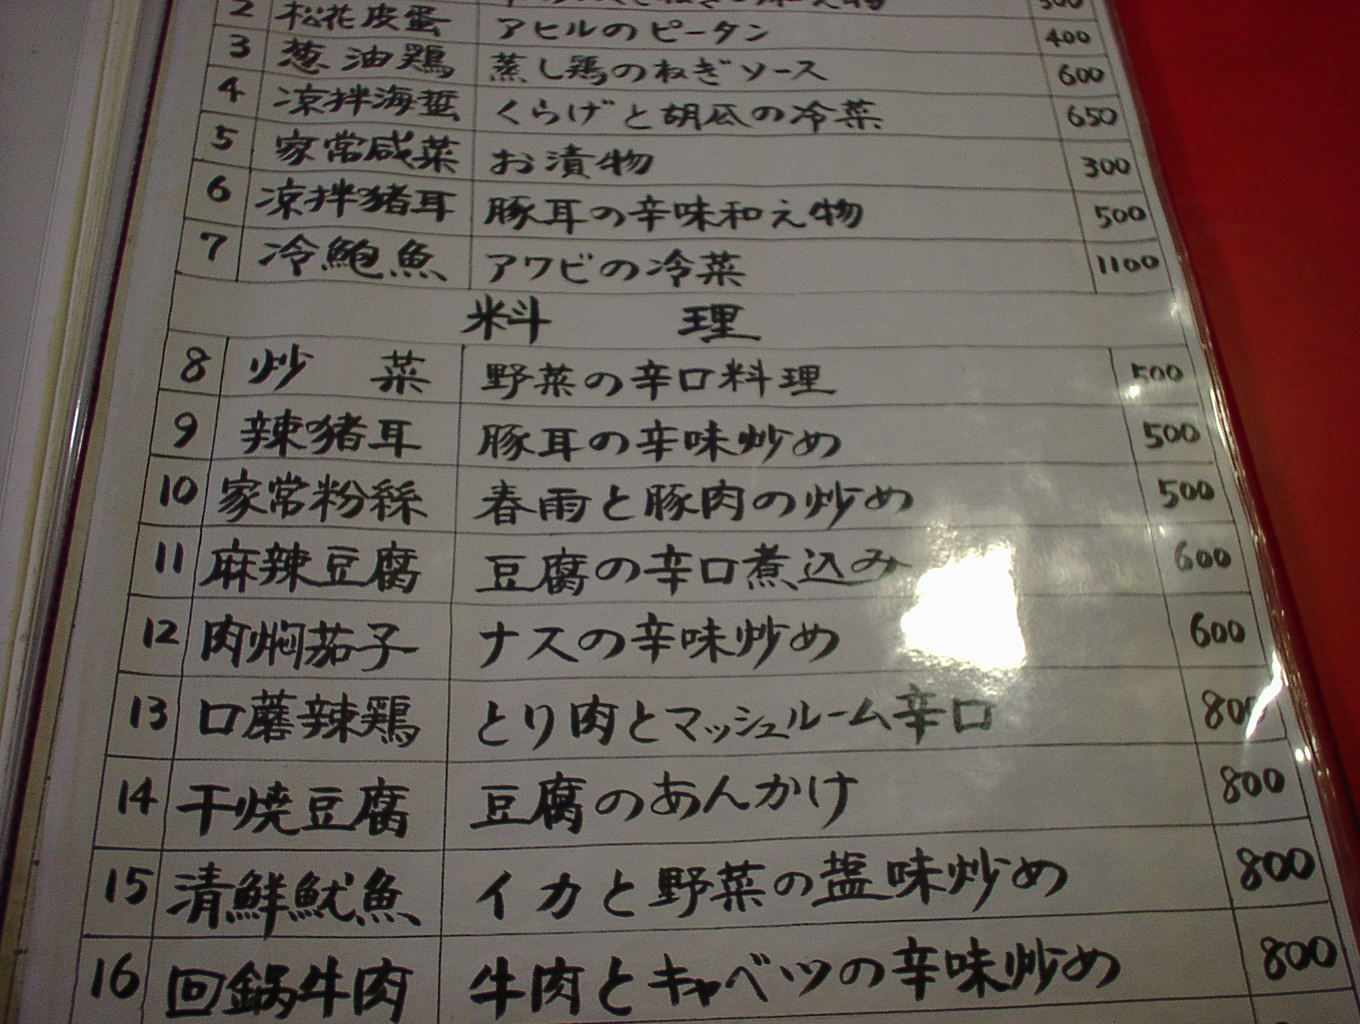 2 松花皮蛋 アヒルのピータン 400
3 葱油鶏 蒸し鶏のねぎソース 600
4 凉拌海蜇 くらげと胡瓜の冷菜 650
5 家常咸菜 お漬物 300
6 凉拌猪耳 豚耳の辛味和え物 500
7 冷鮑魚 アワビの冷菜 1100
料 理
8 炒 菜 野菜の辛口料理 500
9 辣猪耳 豚耳の辛味炒め 500
10 家常粉絲 春雨と豚肉の炒め 500
11 麻辣豆腐 豆腐の辛口煮込み 600
12 肉焖茄子 ナスの辛味炒め 600
13 口蘑辣鶏 とり肉とマッシュルーム辛口 800
14 干焼豆腐 豆腐のあんかけ 800
15 清鮮魷魚 イカと野菜の塩味炒め 800
16 回鍋牛肉 牛肉とキャベツの辛味炒め 800